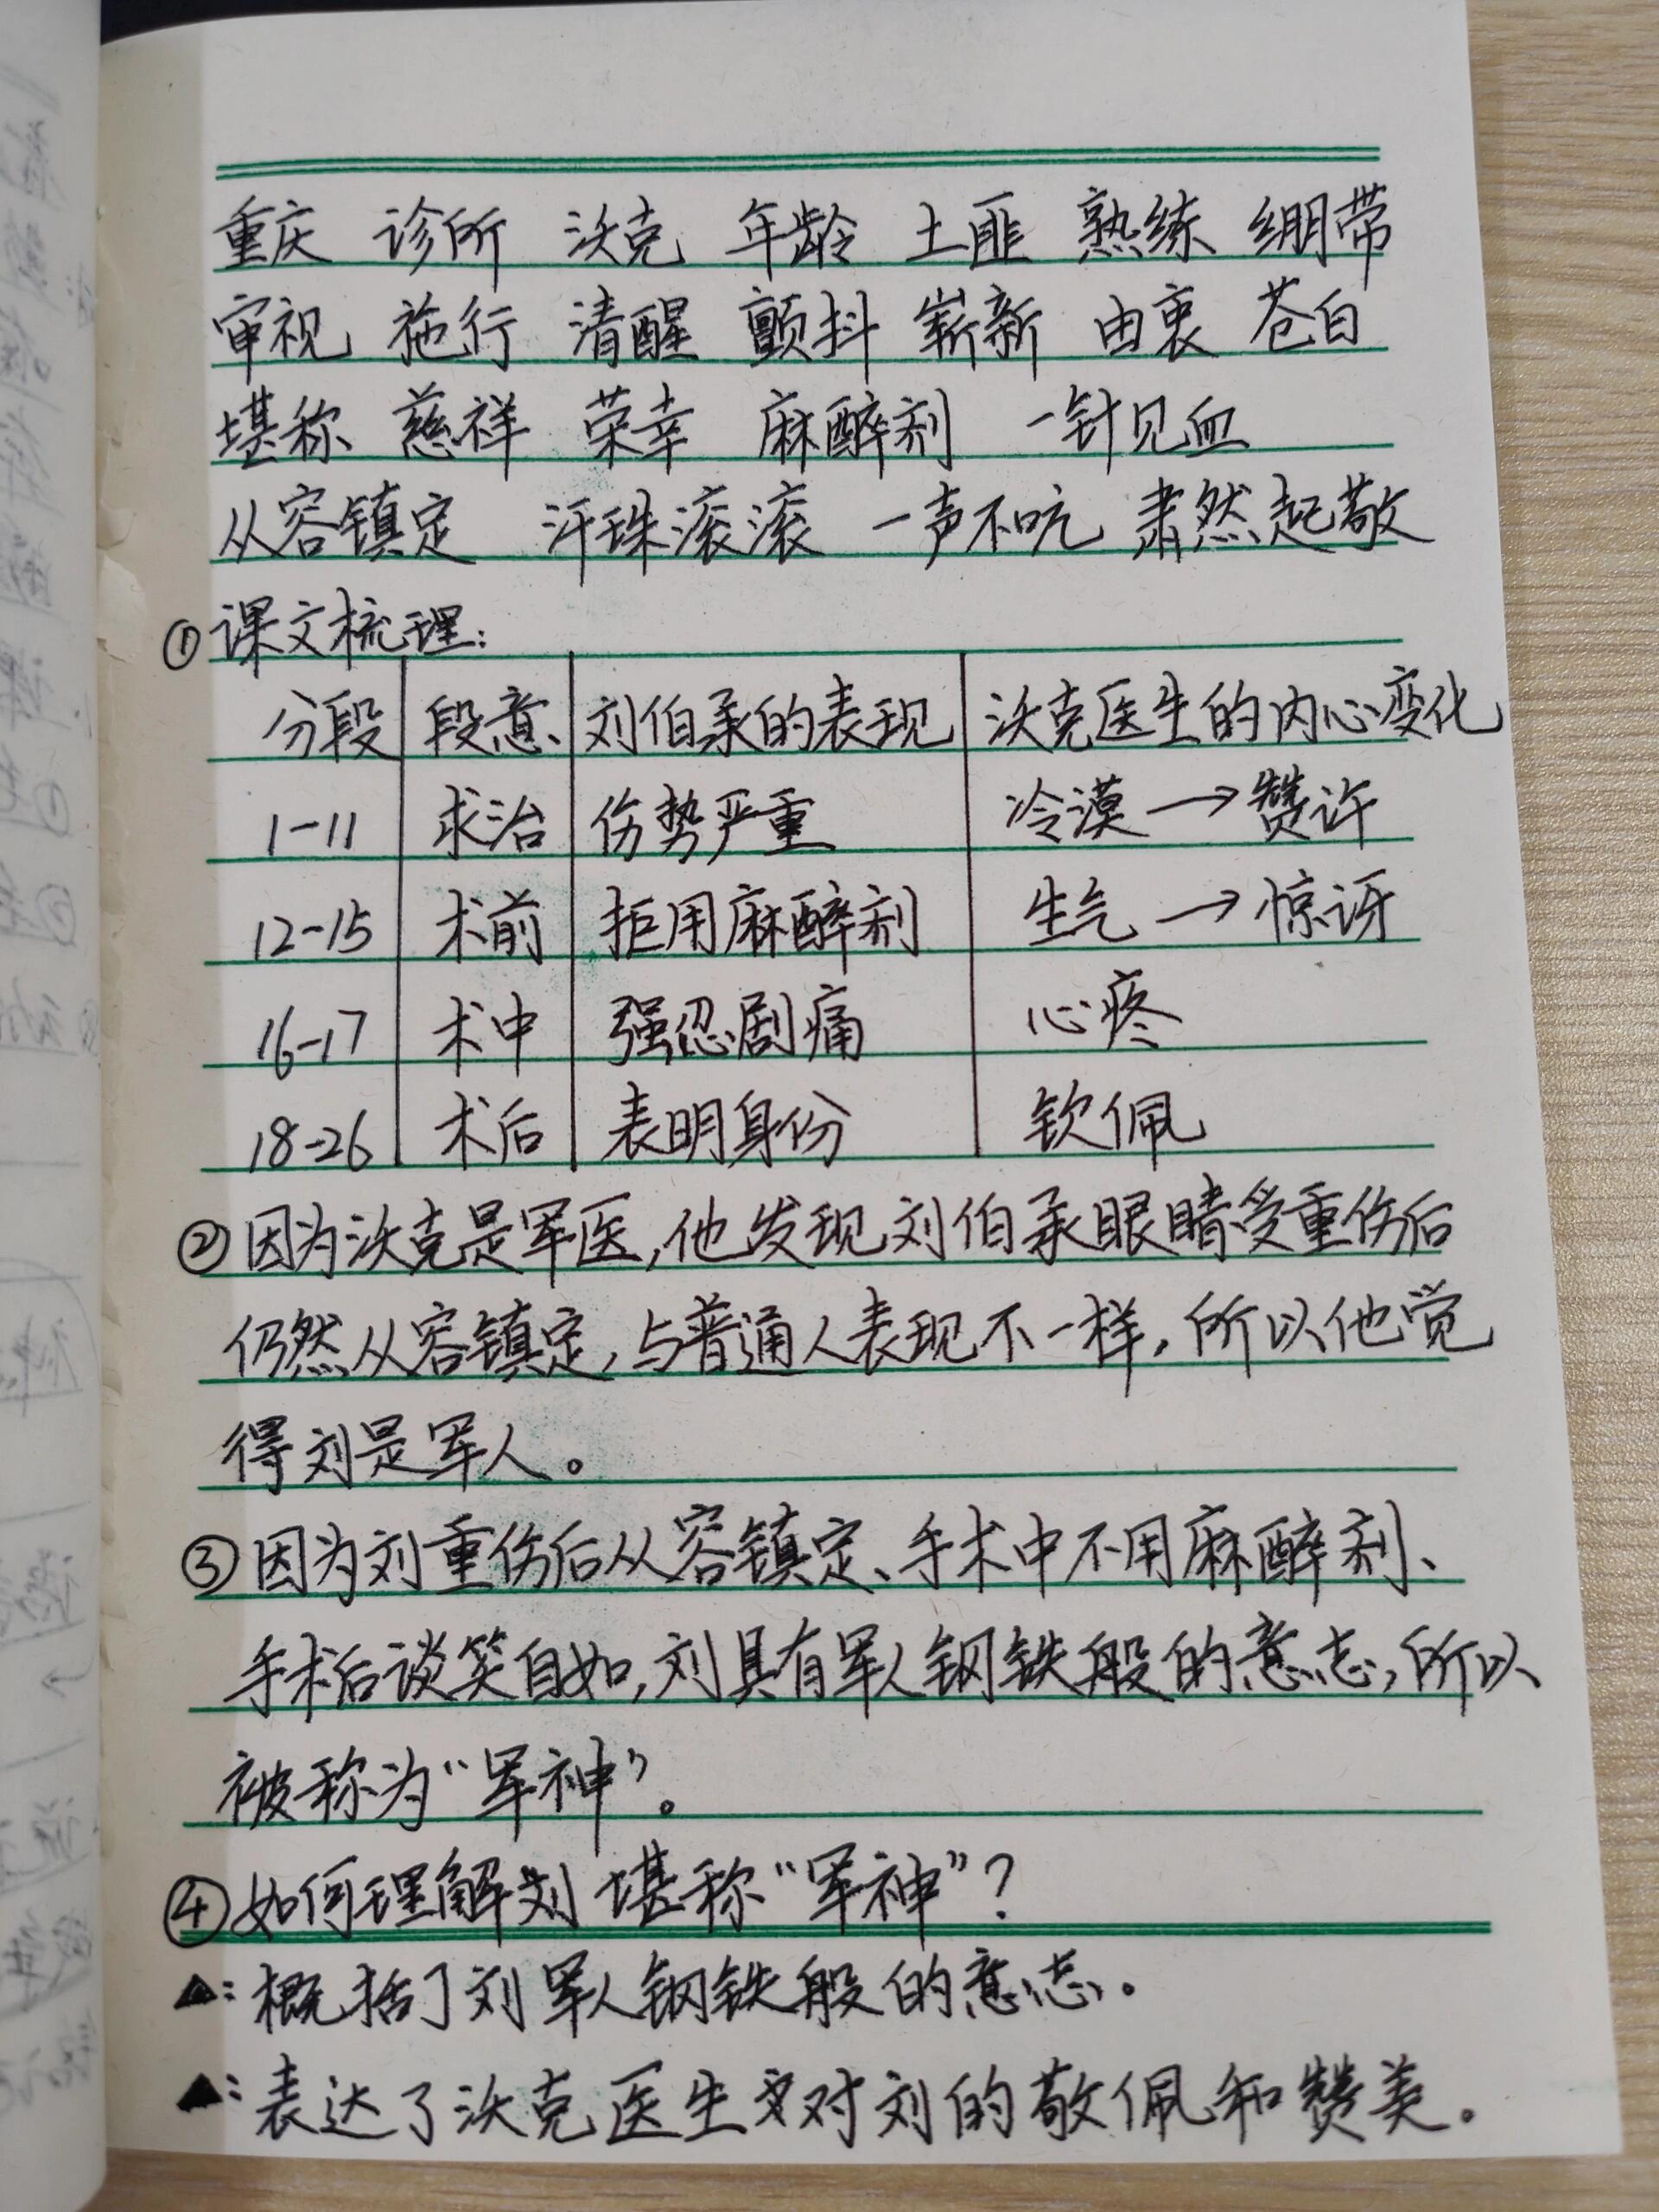 重庆 诊所 沃克 年龄 土匪 熟练 绷带
审视 施行 清醒 颤抖 崭新 由衷 苍白
堪称 慈祥 荣幸 麻醉剂 一针见血
从容镇定 汗珠滚滚 一声不吭 肃然起敬
①课文梳理:
分段 段意 刘伯承的表现 沃克医生的内心变化
1-11 求治 伤势严重 冷漠→赞许
12-15 术前 拒用麻醉剂 生气→惊讶
16-17 术中 强忍剧痛 心疼
18-26 术后 表明身份 钦佩
②因为沃克是军医,他发现刘伯承眼睛受重伤后
仍然从容镇定,与普通人表现不一样,所以他觉
得刘是军人。
③因为刘重伤后从容镇定、手术中不用麻醉剂、
手术后谈笑自如,刘具有军人钢铁般的意志,所以
被称为“军神”。
④如何理解刘堪称“军神”?
▲:概括了刘军人钢铁般的意志。
▲:表达了沃克医生对刘的敬佩和赞美。